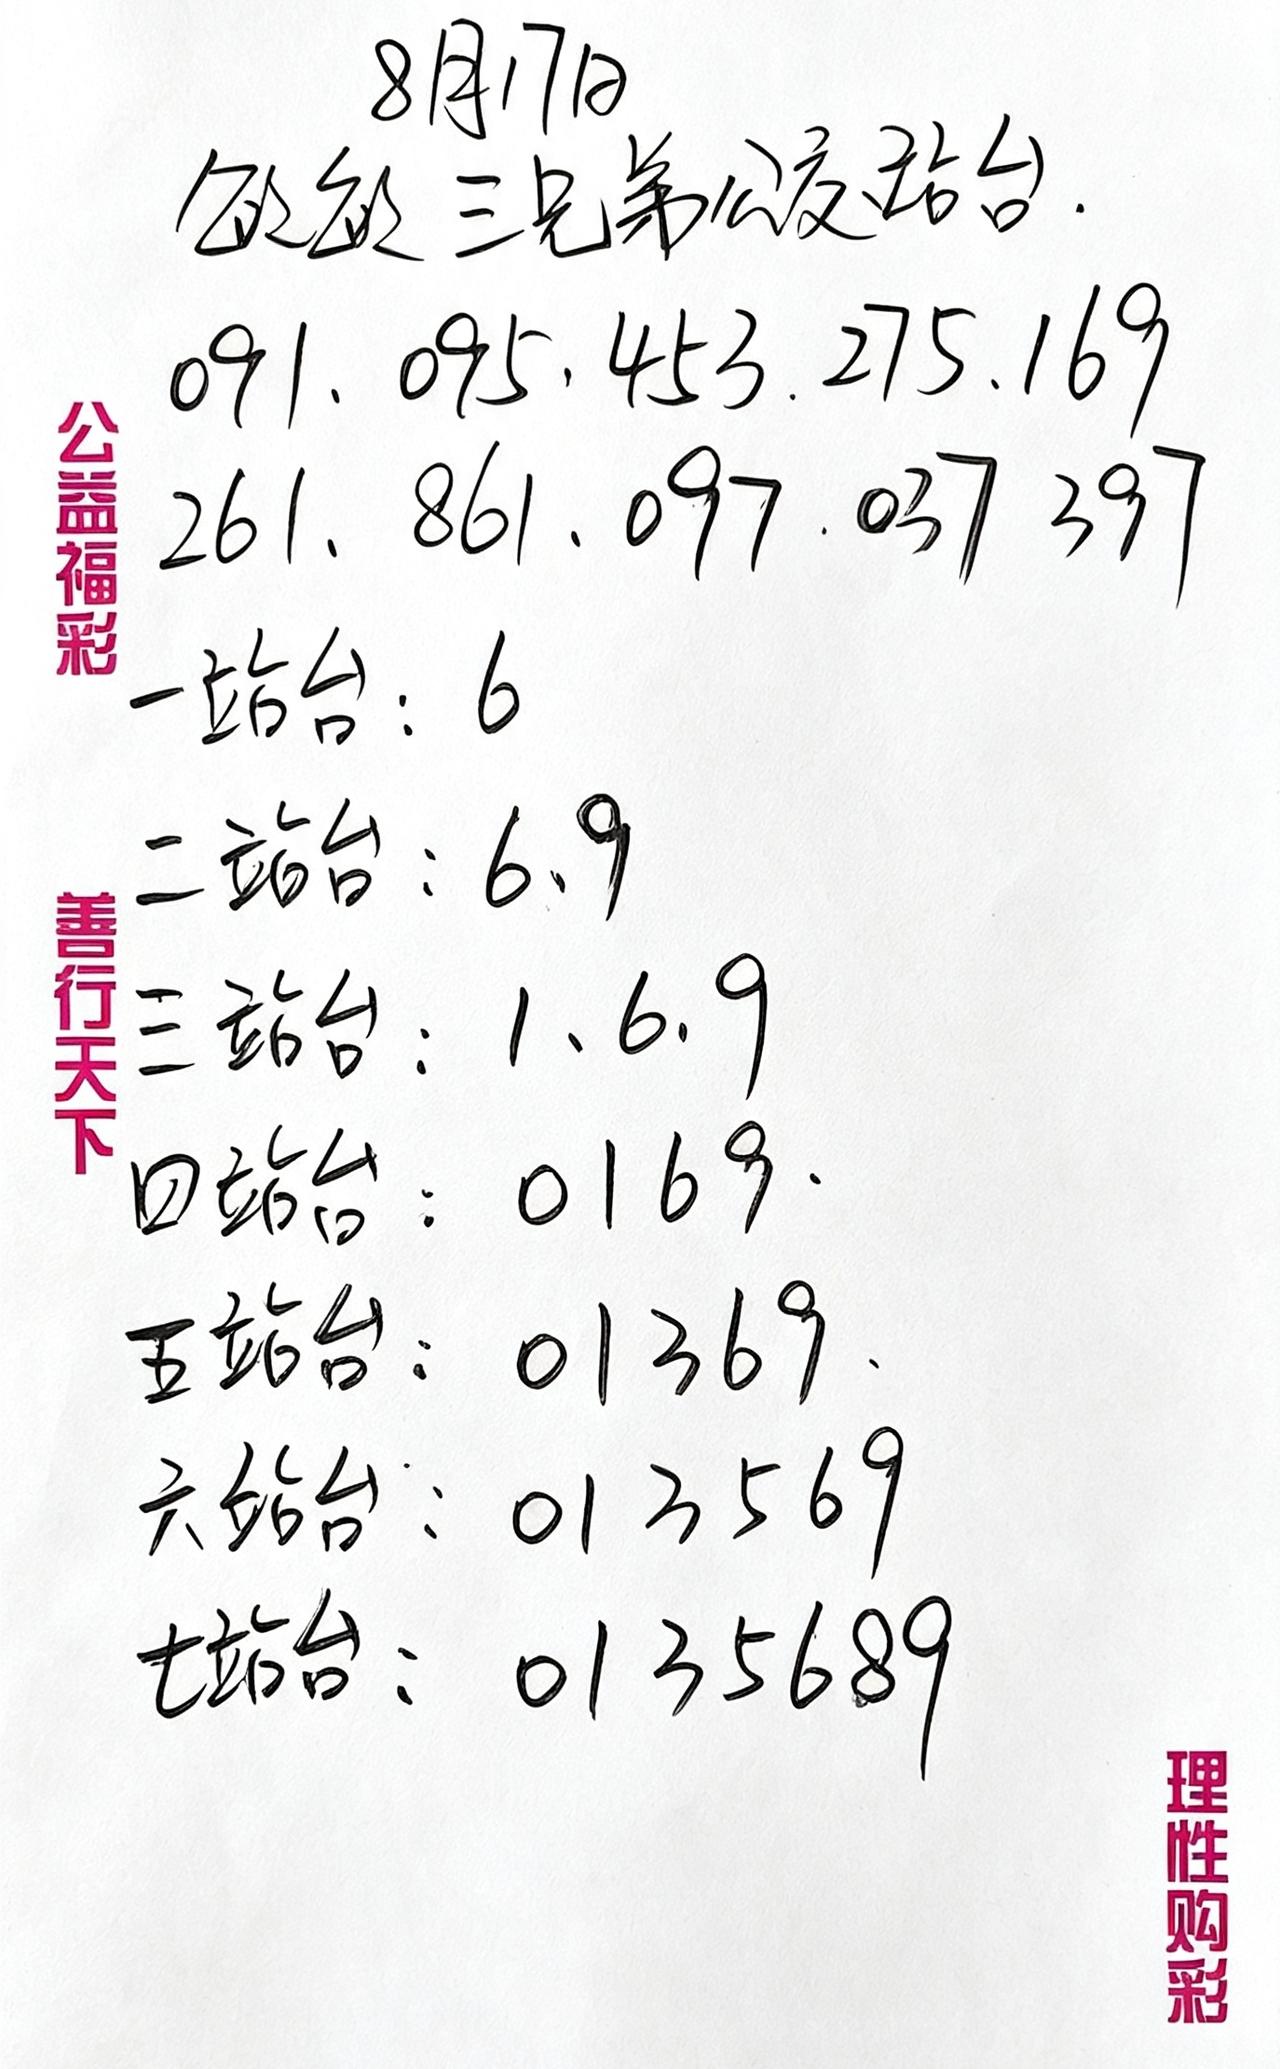 8月17日
三兄弟公交站台.
091. 095. 453. 275. 169
261. 861. 097. 037 397
一站台: 6
二站台: 6.9
三站台: 1、6.9
四站台: 0169.
五站台: 01369.
六站台: 013569
七站台: 0135689
公益福彩
善行天下
理性购彩